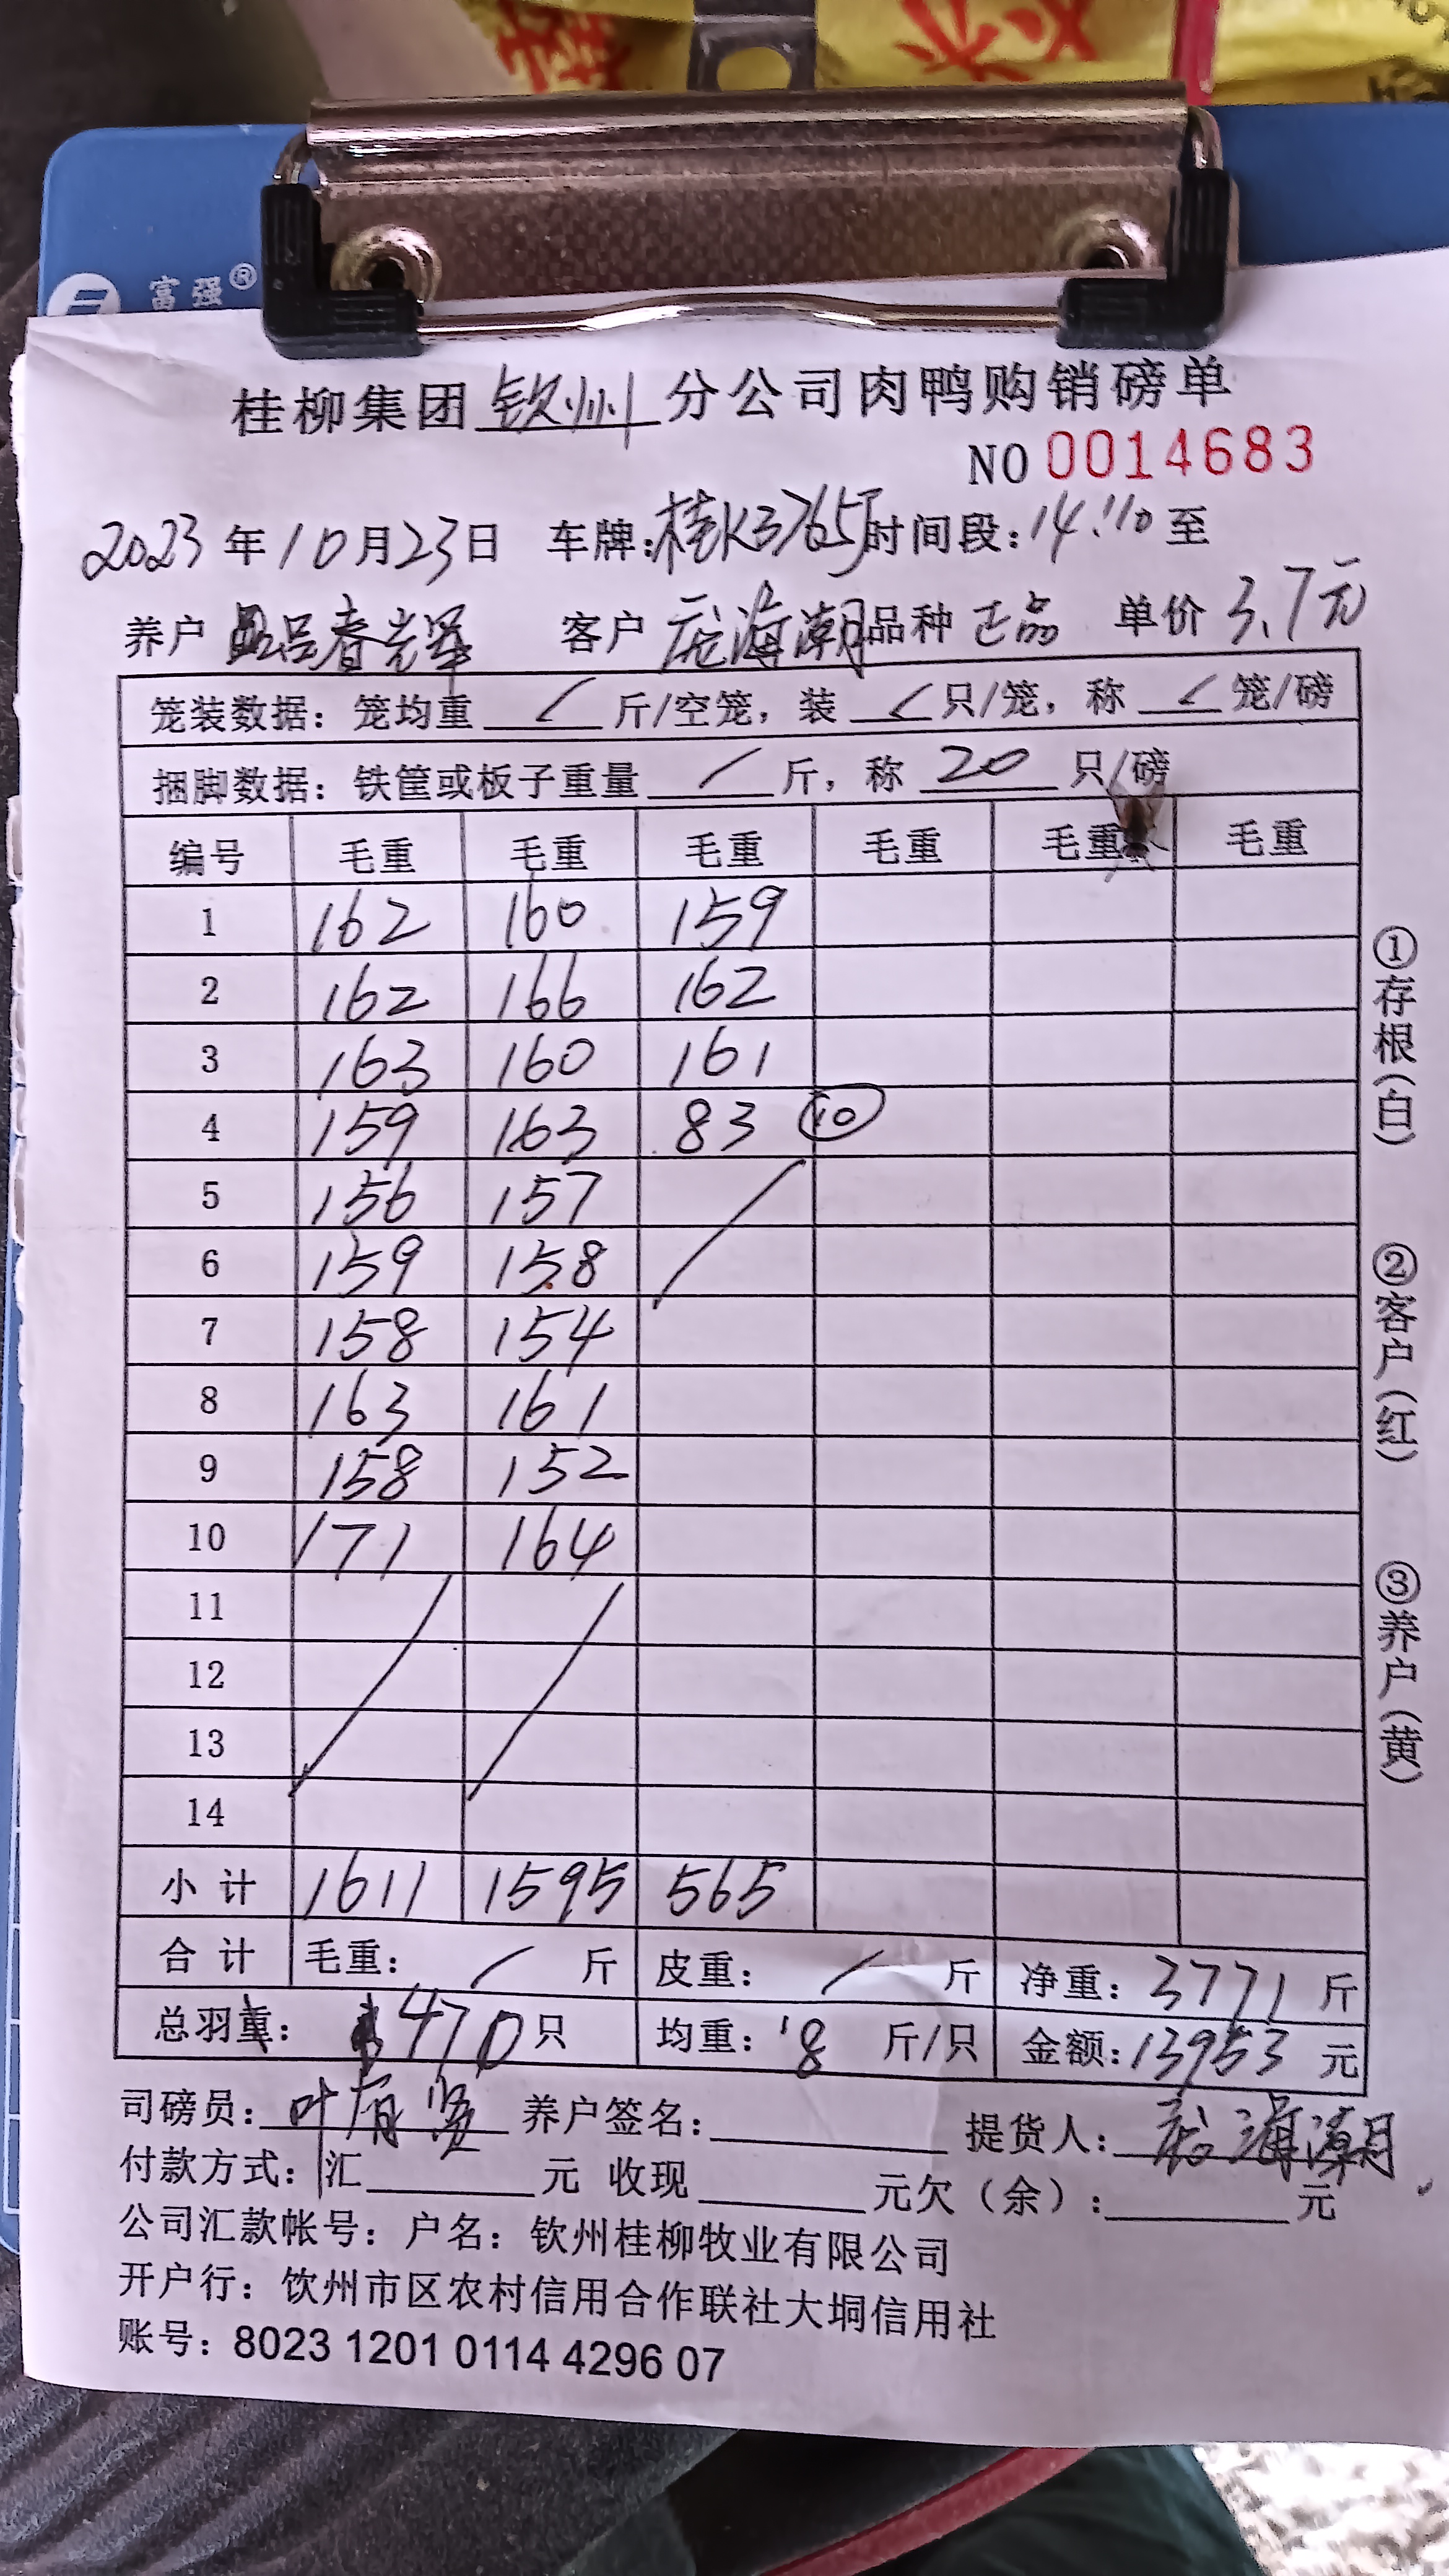 富强®
桂柳集团钦州分公司肉鸭购销磅单
NO 0014683
2023年10月23日 车牌:桂K3765J时间段:14:10至
养户 吕春光军 客户 庞海潮 品种 正品 单价 3.7元
笼装数据: 笼均重 / 斤/空笼, 装 / 只/笼, 称 / 笼/磅
捆脚数据: 铁筐或板子重量 / 斤, 称 20 只/磅
编号 毛重 毛重 毛重 毛重 毛重 毛重
1 162 160 159
2 162 166 162
3 163 160 161
4 159 163 83 10
5 156 157
6 159 158
7 158 154
8 163 161
9 158 152
10 171 164
11
12
13
14
小计 1611 1595 565
合计 毛重: / 斤 皮重: / 斤 净重: 3771 斤
总羽重: 470只 均重: 8 斤/只 金额:13953 元
司磅员: 叶 养户签名: 提货人: 庞海潮
付款方式: 汇 元 收现 元欠(余): 元
公司汇款帐号: 户名: 钦州桂柳牧业有限公司
开户行: 钦州市区农村信用合作联社大垌信用社
账号: 8023 1201 0114 4296 07
①存根(白)
②客户(红)
③养户(黄)